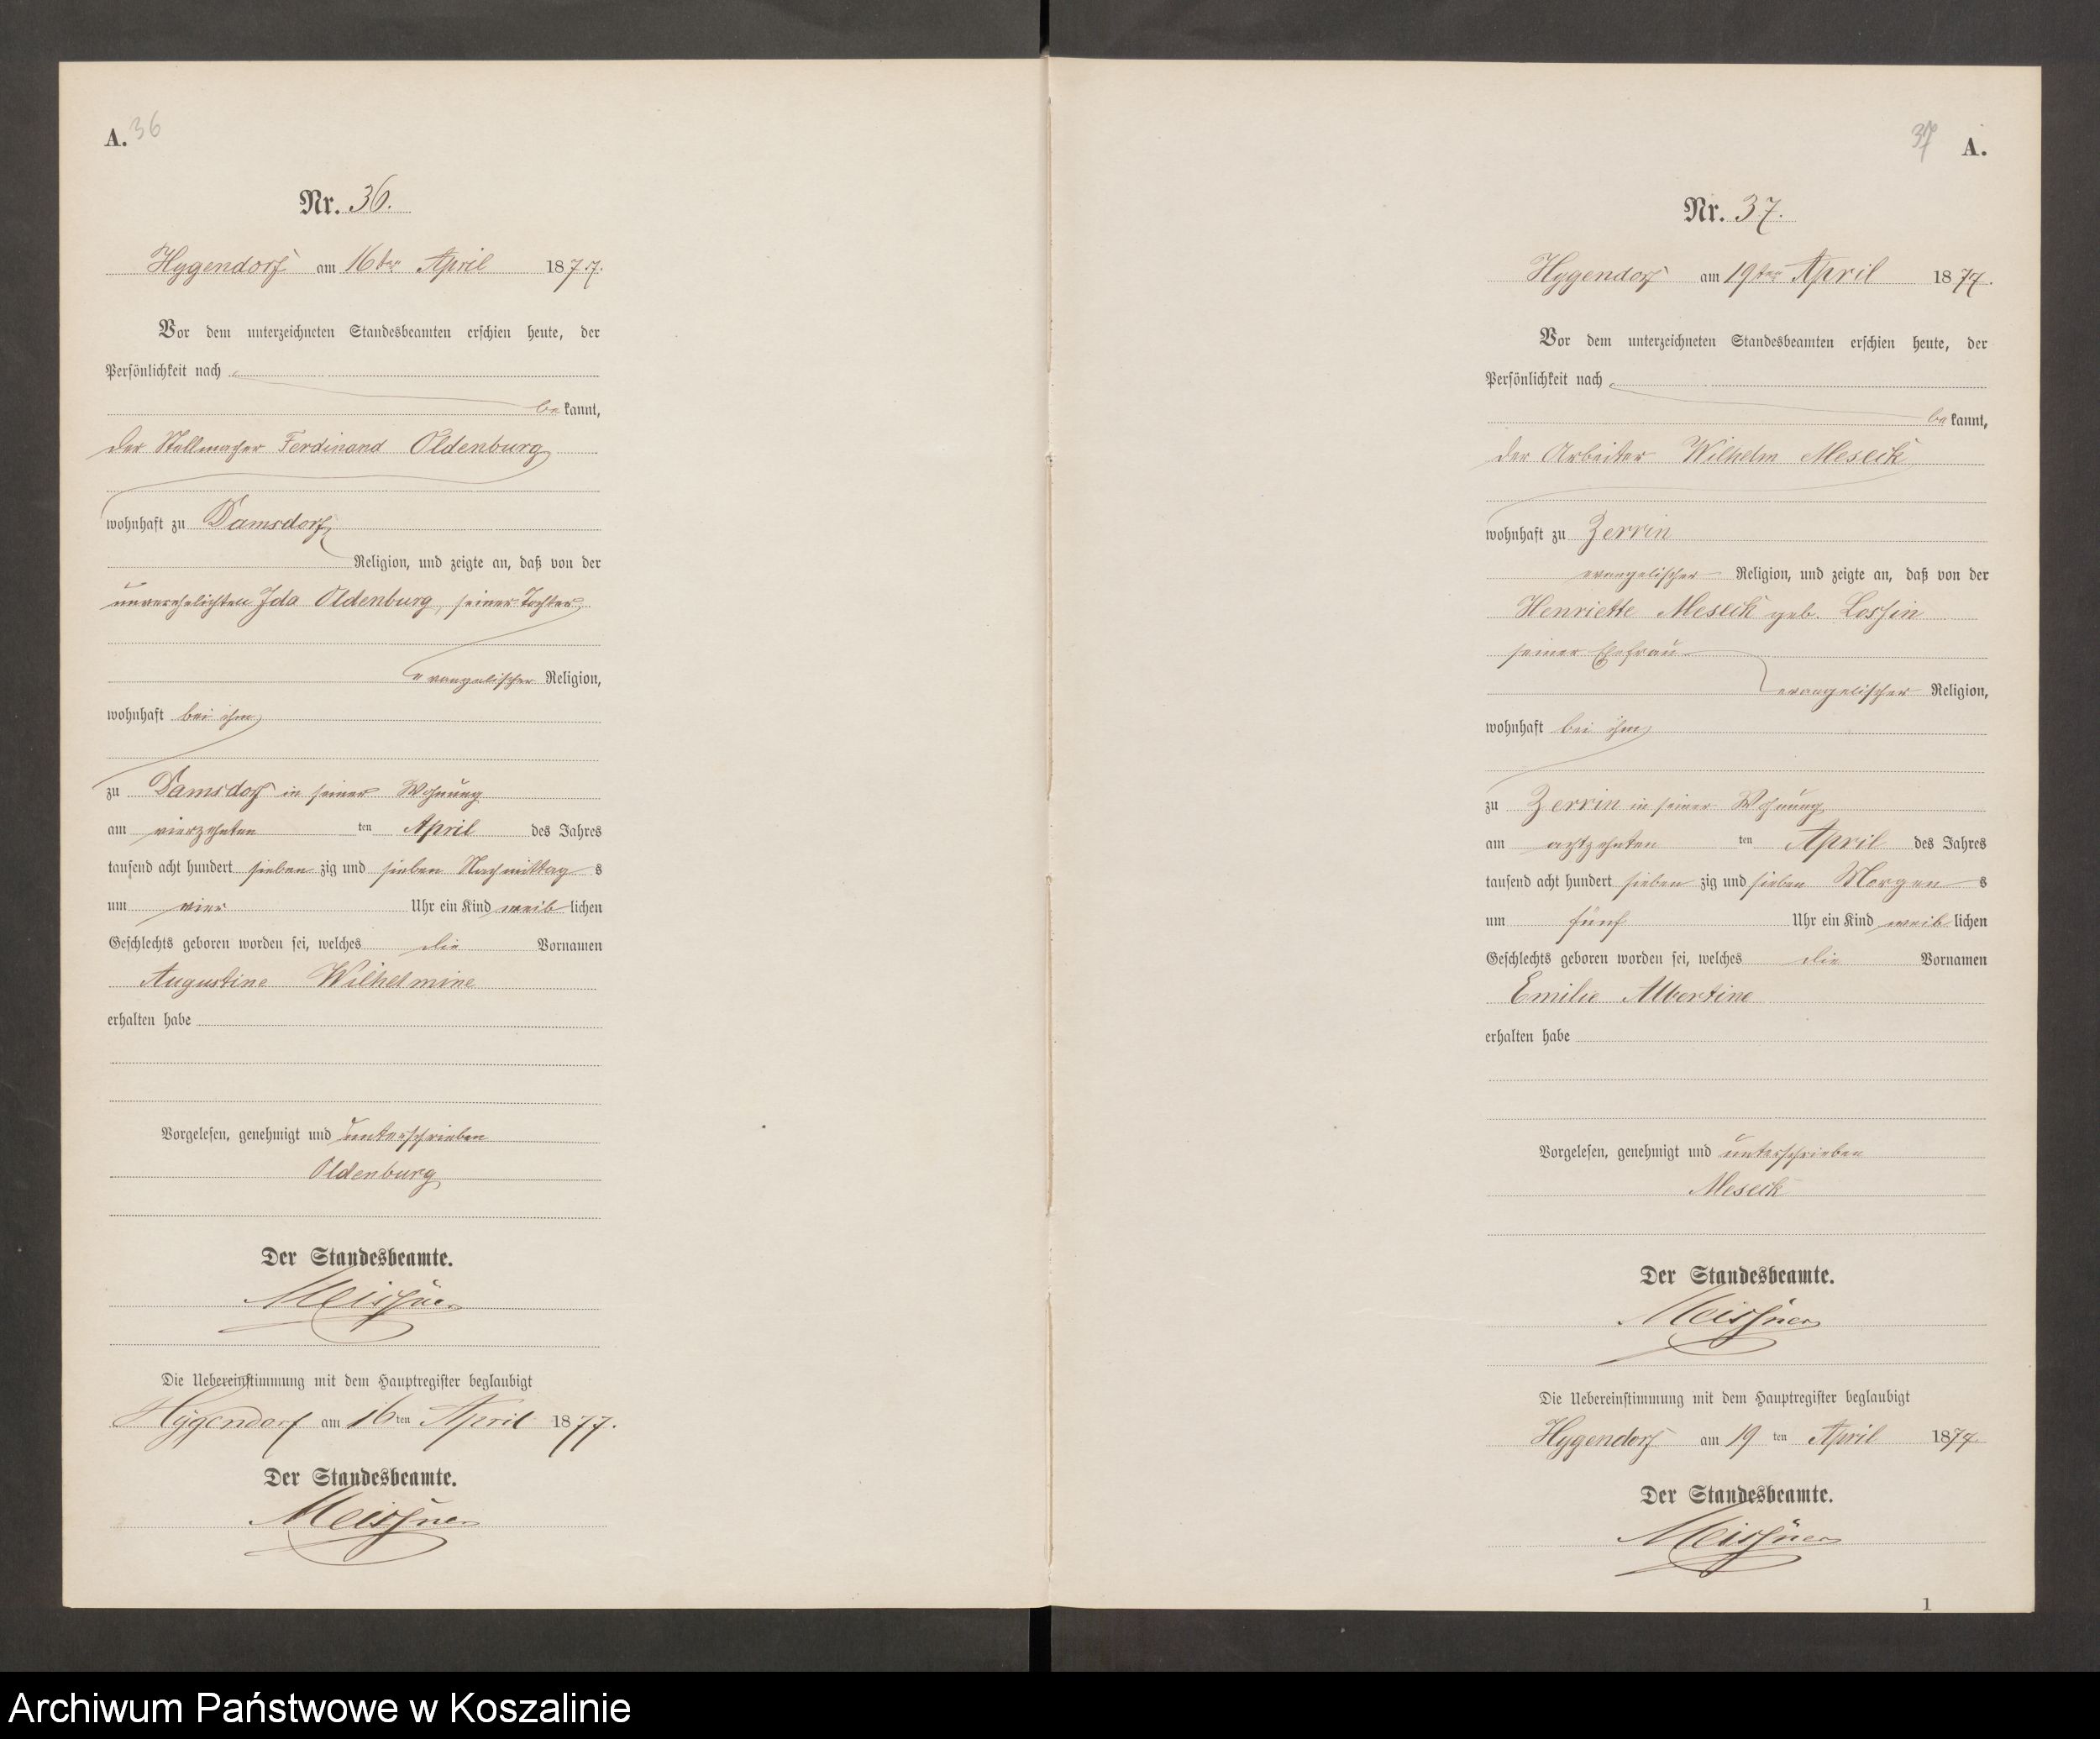 A. 36
Nr. 36.
Hygendorf am 16ten April 1877.
Vor dem unterzeichneten Standesbeamten erschien heute, der
Persönlichkeit nach
bekannt,
der Stellmacher Ferdinand Oldenburg
wohnhaft zu Damsdorf
Religion, und zeigte an, daß von der
unverehelichten Ida Oldenburg, seiner Tochter
evangelischer Religion,
wohnhaft bei ihm
zu Damsdorf in seiner Wohnung
am vierzehnten ten April des Jahres
tausend acht hundert sieben zig und sieben Nachmittag s
um vier Uhr ein Kind weib lichen
Geschlechts geboren worden sei, welches die Vornamen
Augustine Wilhelmine
erhalten habe
Vorgelesen, genehmigt und unterschrieben
Oldenburg
Der Standesbeamte.
Meissner
Die Uebereinstimmung mit dem Hauptregister beglaubigt
Hygendorf am 16ten April 1877.
Der Standesbeamte.
Meissner
37 A.
Nr. 37.
Hygendorf am 19ten April 1877.
Vor dem unterzeichneten Standesbeamten erschien heute, der
Persönlichkeit nach
bekannt,
der Arbeiter Wilhelm Meseck
wohnhaft zu Zerrin
evangelischer Religion, und zeigte an, daß von der
Henriette Meseck geb. Lossin
seiner Ehefrau
evangelischer Religion,
wohnhaft bei ihm
zu Zerrin in seiner Wohnung
am achtzehnten ten April des Jahres
tausend acht hundert sieben zig und sieben Morgen s
um fünf Uhr ein Kind weib lichen
Geschlechts geboren worden sei, welches die Vornamen
Emilie Albertine
erhalten habe
Vorgelesen, genehmigt und unterschrieben
Meseck
Der Standesbeamte.
Meissner
Die Uebereinstimmung mit dem Hauptregister beglaubigt
Hygendorf am 19 ten April 1877.
Der Standesbeamte.
Meissner
1
Archiwum Państwowe w Koszalinie